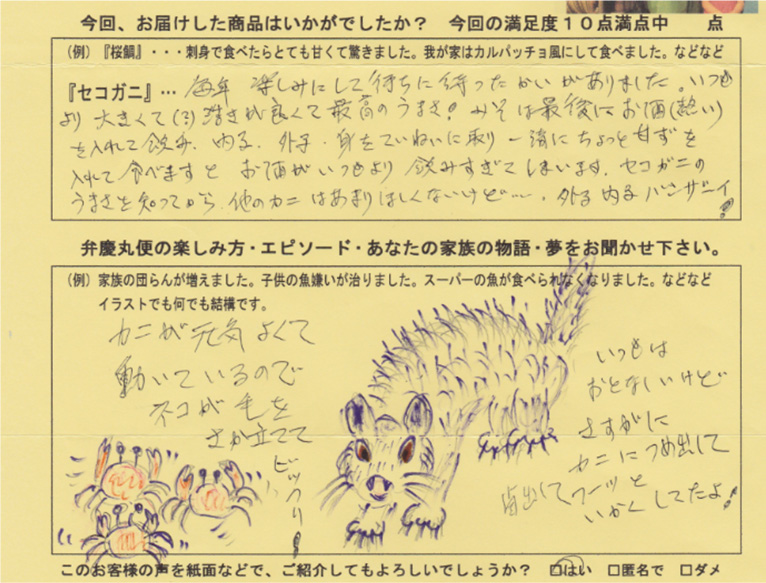 今回、お届けした商品はいかがでしたか？　今回の満足度１０点満点中　　点
（例）『桜鯛』・・・刺身で食べたらとても甘くて驚きました。我が家はカルパッチョ風にして食べました。などなど
『セコガニ』… 毎年 楽しみにして待ちに待ったかいがありました。いつも
より大きくて 活きが良くて最高のうまさ！ みそは最後にお酒（熱い）
を入れて飲み、内子、外子、身をていねいに取り一緒にちょっと甘ずを
入れて食べますと お酒がいつもより 飲みすぎてしまいます。セコガニの
うまさを知ってから 他のカニはあまりほしくないけど…、外子 内子 バンザーイ！
弁慶丸便の楽しみ方・エピソード・あなたの家族の物語・夢をお聞かせ下さい。
（例）家族の団らんが増えました。子供の魚嫌いが治りました。スーパーの魚が食べられなくなりました。などなど
イラストでも何でも結構です。
カニが元気よくて
動いているので
ネコが毛を
さか立てて
ビックリ！
いつもは
おとなしいけど
さすがに
カニにつめ出して
歯出してワーッと
いかくしてたよ！
このお客様の声を紙面などで、ご紹介してもよろしいでしょうか？　□はい　□匿名で　□ダメ